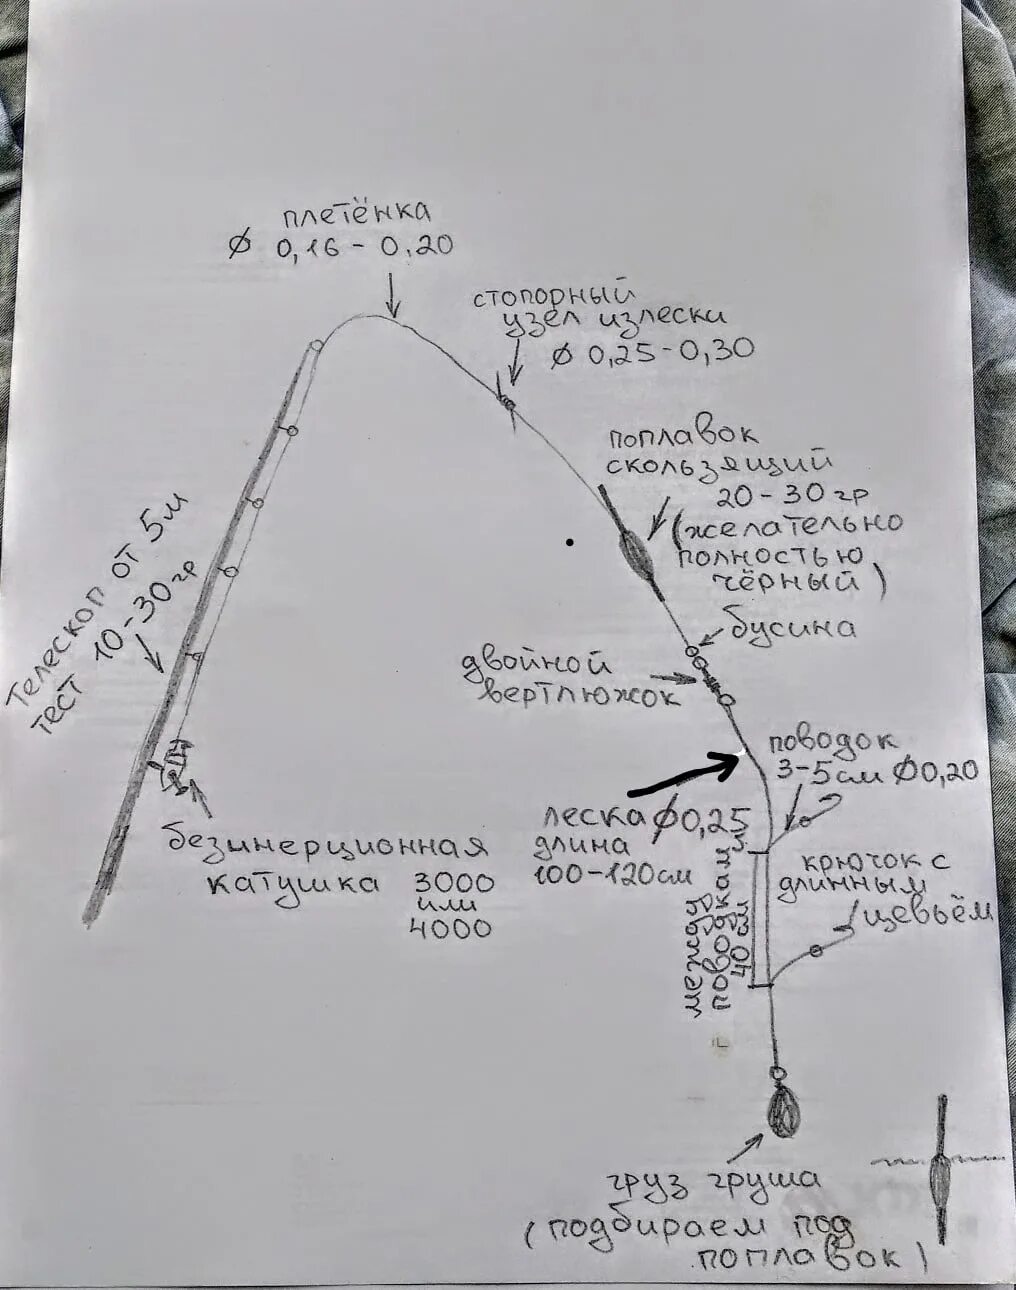 плетёнка
ф 0,16 - 0,20
стопорный
узел из лески
ф 0,25-0,30
поплавок
скользящий
20-30 гр
(желательно
полностью
чёрный)
бусина
двойной
вертлюжок
Телескоп от 5м
тест 10-30 гр
безинерционная
катушка 3000
или
4000
поводок
3-5см ф0,20
леска ф0,25
длина
100-120см
между
поводками
40 см
крючок с
длинным
цевьём
груз груша
(подбираем под
поплавок)